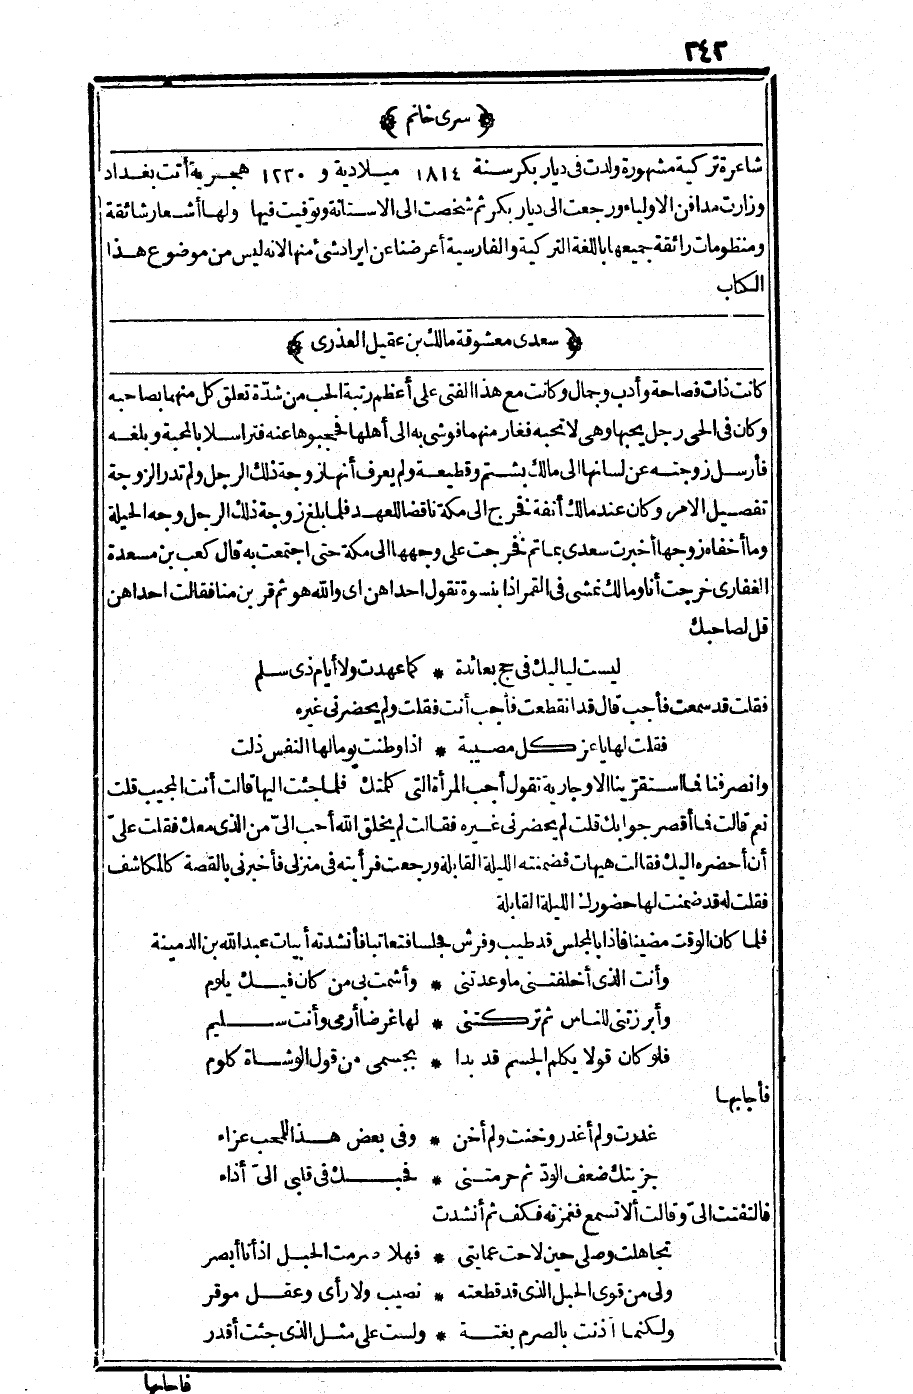 ٢٤٢
﴿ سرى خانم ﴾
شاعرة تركية مشهورة ولدت فى ديار بكر سنة ١٨١٤ ميلادية و ١٢٣٠ هجرية أتت بغداد
وزارت مدافن الاولياء ورجعت الى ديار بكر ثم شخصت الى الاستانة وتوفيت فيها ولها أشعار شائقة
ومنظومات رائقة جميعها باللغة التركية والفارسية أعرضنا عن ايراد شئ منها لانه ليس من موضوع هذا
الكتاب
﴿ سعدى معشوقة مالك بن عقيل العذرى ﴾
كانت ذات فصاحة وأدب وجمال وكانت مع هذا الفتى على أعظم رتبة الحب من شدّة تعلق كل منهما بصاحبه
وكان فى الحى رجل يحبها وهى لا تحبه فغار منهما فوشى به الى أهلها فحجبوها عنه فتراسلا بالمحبة وبلغه
فأرسل زوجته عن لسانها الى مالك بشتم وقطيعة ولم يعرف أنها زوجة ذلك الرجل ولم تدر الزوجة
تفصيل الامر وكان عند مالك أنفة فخرج الى مكة ناقضا للعهد فلما بلغ زوجة ذلك الرجل وجه الحيلة
وما أخفاه زوجها أخبرت سعدى بماتم فخرجت على وجهها الى مكة حتى اجتمعت به قال كعب بن مسعدة
الغفارى خرجت أنا ومالك نمشى فى القمر اذا بنسوة تقول احداهن اى والله هو ثم قربن منا فقالت احداهن
قل لصاحبك
ليست لياليك فى حج بعائدة * كما عهدت ولا أيام ذى سلم
فقلت قد سمعت فأجب قال قد انقطعت فأجب أنت فقلت ولم يحضرنى غيره
فقلت لها ياعز كل مصيبة * اذا وطنت يوما لها النفس ذلت
وانصرفنا فما استقرّ بنا الا وجارية تقول أجب المرأة التى كلمتك فلما جئت اليها قالت أنت المجيب قلت
نعم قالت فما أقصر جوابك قلت لم يحضرنى غيره فقالت لم يخلق الله أحب الىّ من الذى معك فقلت علىّ
أن أحضره اليك فقالت هيهات فضمنته الليلة القابلة ورجعت فرأيته فى منزلى فأخبرنى بالقصة كالمكاشف
فقلت له قد ضمنت لها حضورك الليلة القابلة
فلما كان الوقت مضينا فاذا بالمجلس قد طيب وفرش فجلسا فتعاتبا فأنشدته أبيات عبدالله بن الدمينة
وأنت الذى أخلفتنى ما وعدتنى * وأشمت بى من كان فيك يلوم
وأبرزتنى للناس ثم تركتنى * لها غرضا أرمى وأنت سليم
فلو كان قولا يكلم الجسم قد بدا * بجسمى من قول الوشاة كلوم
فأجابها
غدرت ولم أغدر وخنت ولم أخن * وفى بعض هذا للمحب عزاء
جزيتك ضعف الودّ ثم صرمتنى * فحبك فى قلبى الىّ أذاء
فالتفتت الىّ وقالت ألا تسمع فغمزته فكف ثم أنشدت
تجاهلت وصلى حين لاحت عمايتى * فهلا صرمت الحبل اذ أنا أبصر
ولى من قوى الحبل الذى قد قطعته * نصيب ولا رأى وعقل موقر
ولكنما آذنت بالصرم بغتة * ولست على مثل الذى جئت أقدر
فاجابها